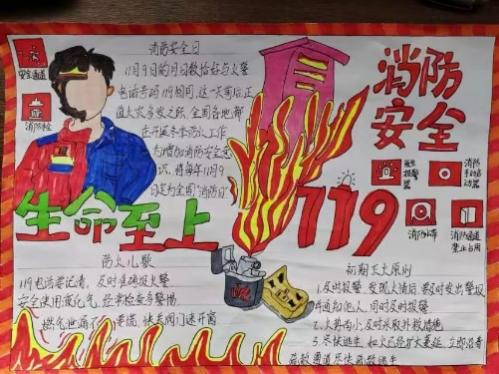 消防安全日
11月9日的月日数恰好与火警
电话号码119相同,这一天前后,正
值火灾多发之际,全国各地都
在开展冬季防火工作
为增加消防安全意
识,将每年11月9
日定为全国"消防日"
安全通道
消防栓
消防
安全
119
报警
器
消防手动启
动器
消防水带
消防通道
禁止占用
生命至上
防火儿歌
119电话要记清,及时准确报火警
安全使用液化气,经常检查多警惕
燃气泄漏不要慌,快关阀门速开窗
初期灭火原则
1.及时报警,发现火情后,要及时发出警报
通知他人,同时及时报警
2.火势尚小,及时采取扑救措施
3.尽快逃生,如火已经扩大蔓延,立即沿着
疏散通道尽快疏散逃生